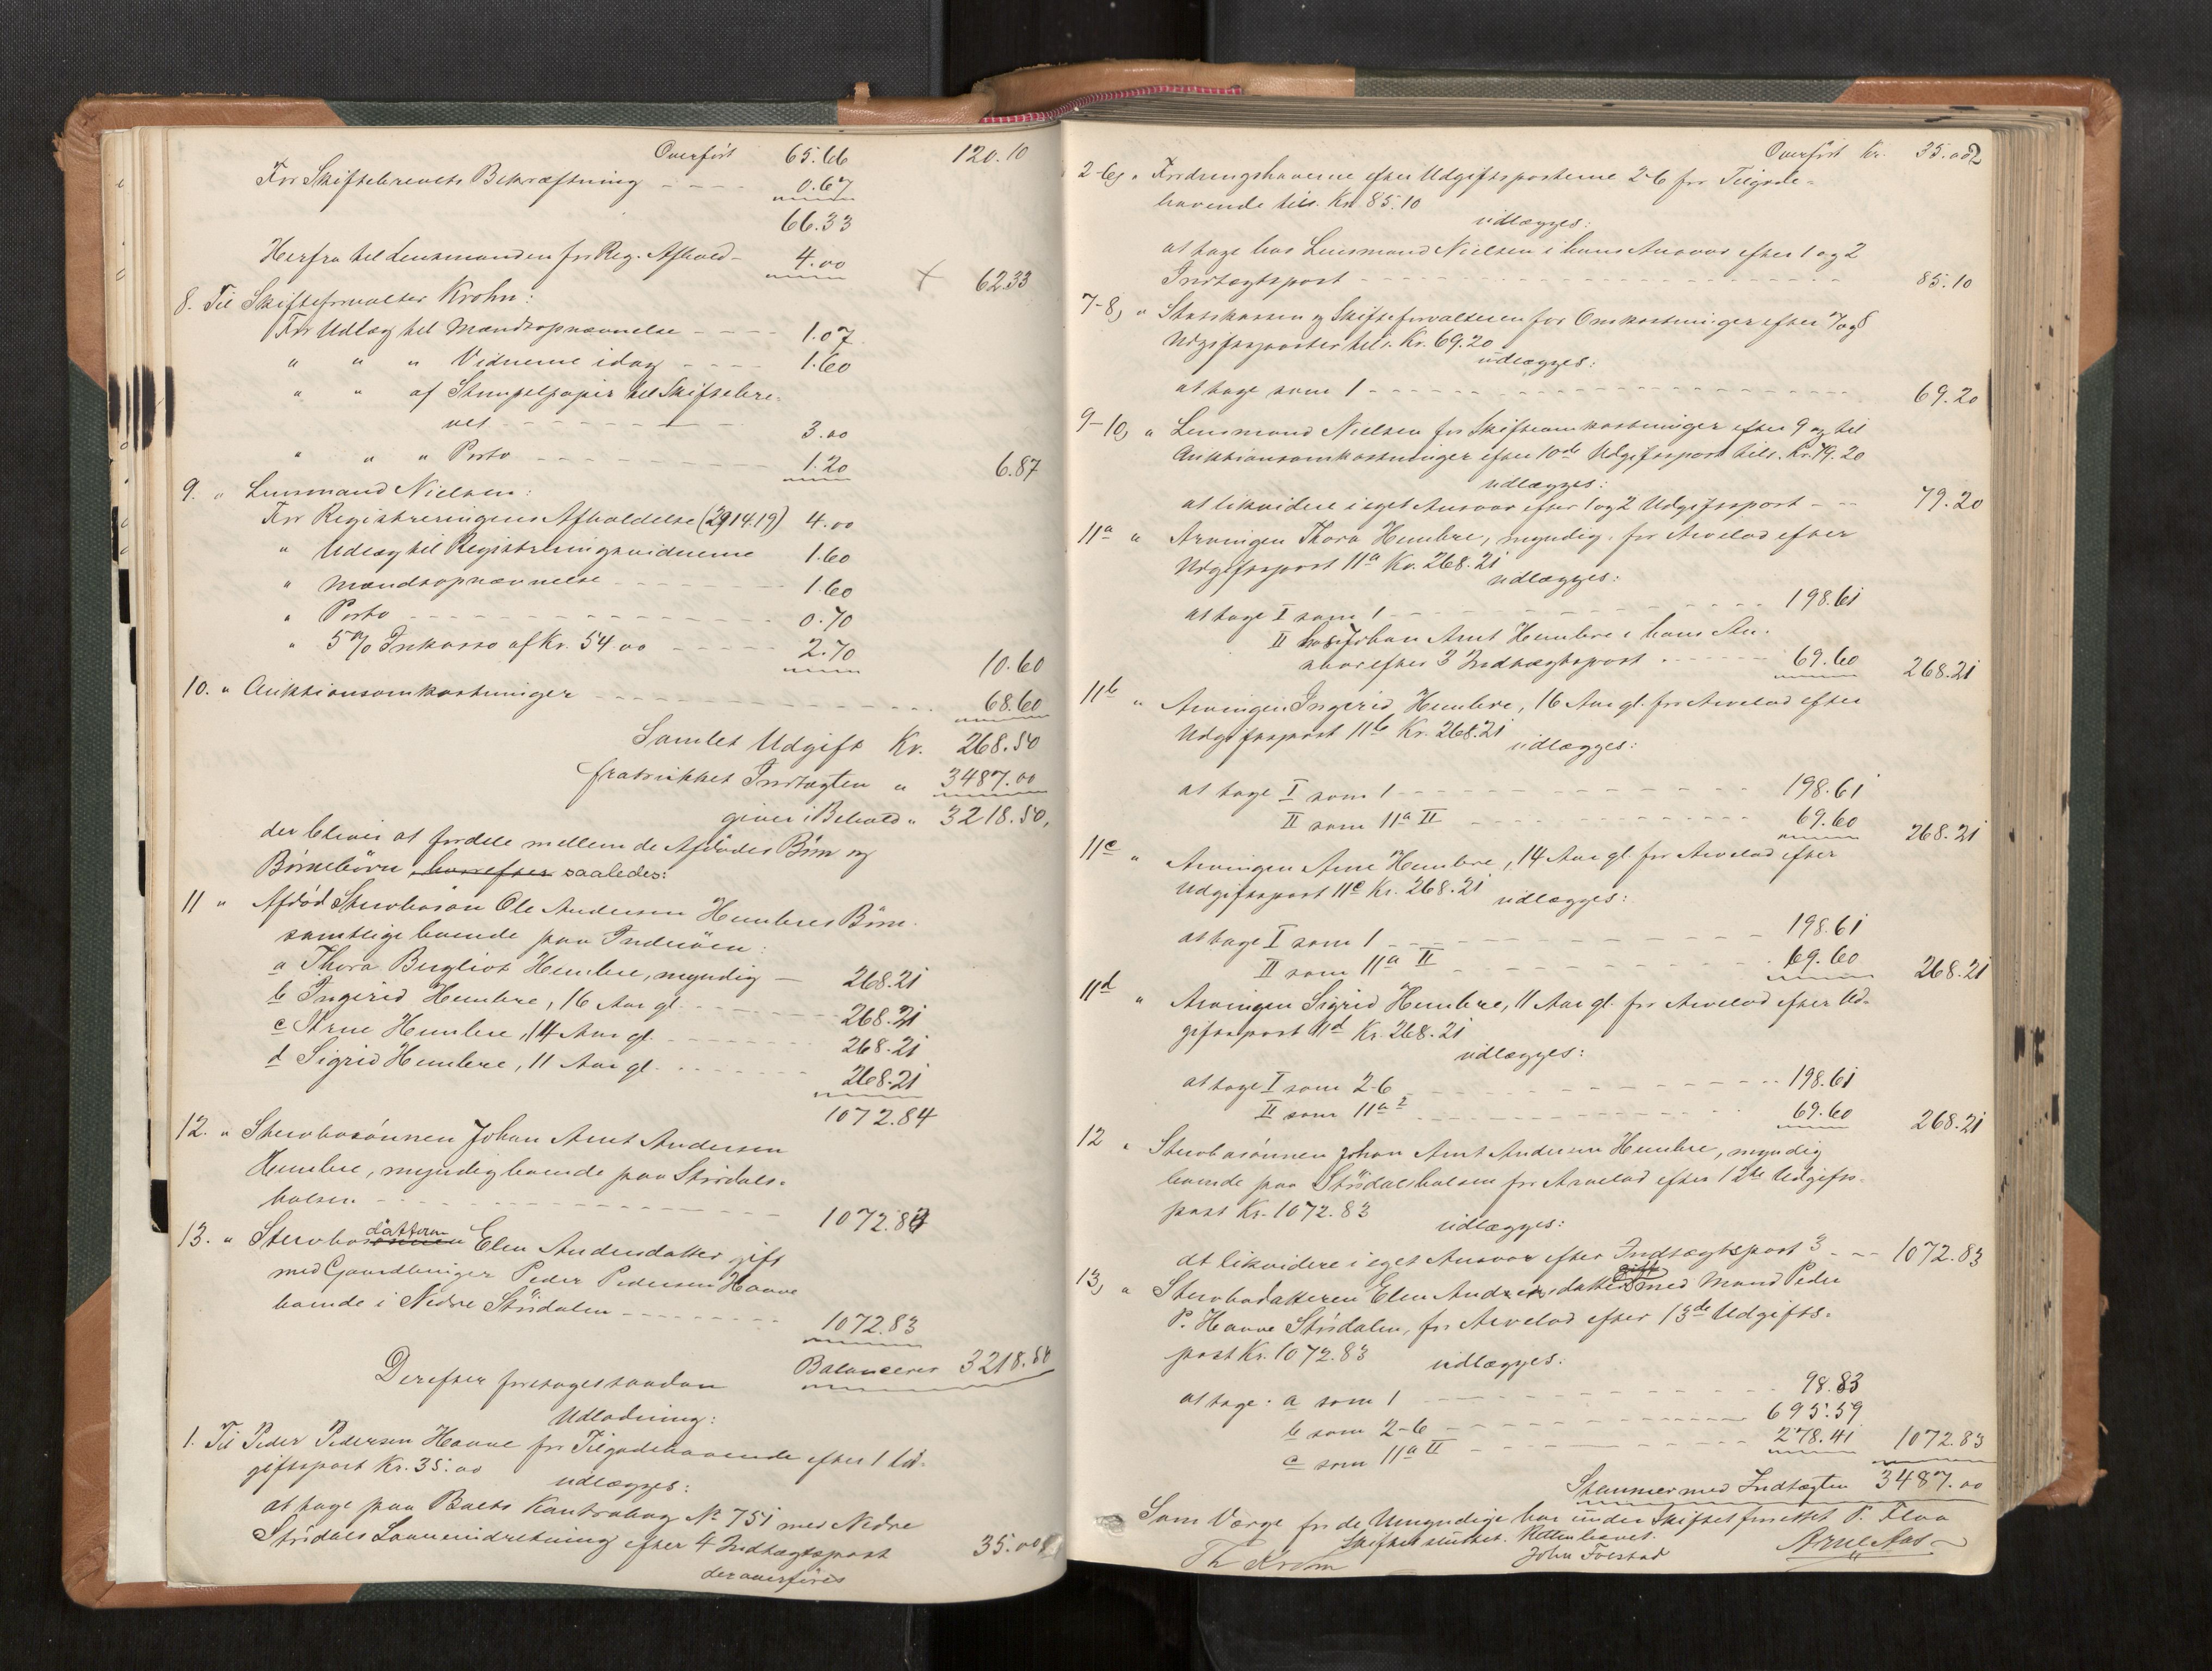 Overført 65.66 120.10
For Skiftebrevets Bekræftning - - - - 0.67
66.33
Herfra til Lensmanden for Reg. Afhold - 4.00 + 62.33
8. Til Skifteforvalter Krohn:
For Udlæg til Mandsopnævnelse - - - - 1.07
" " " Vidnerne idag - - - - 1.60
" " af Stempelpapir til Skiftebre-
vet - - - - 3.00
" " " Porto - - - - 1.20 6.87
9. " Lensmand Nielsen:
For Registreringens Afholdelse (29/14.19) 4.00
" Udlæg til Registreringsvidnerne 1.60
" Mandsopnævnelse - - - - 1.60
" Porto - - - - 0.70
" 5% Inkasso af Kr. 54.00 - - - - 2.70 10.60
10. " Auktionsomkostninger - - - - 68.60
Samlet Udgift Kr. 268.50
fratrukket Indtægten " 3487.00
giver i Behold " 3218.50,
der bliver at fordele mellem de Afdødes Børn og
Børnebørn saaledes:
11 " Afdød Stervbosøn Ole Andersen Hembres Børn.
samtlige boende paa Inderøen:
a Thora Bergliot Hembre, myndig — 268.21
b Ingerid Hembre, 16 Aar gl. - - - - 268.21
c Arne Hembre, 14 Aar gl. - - - - 268.21
d Sigrid Hembre, 11 Aar gl. - - - - 268.21
1072.84
12. " Stervbosønnen Johan Arnt Andersen
Hembre, myndig boende paa Stjørdals-
halsen - - - - 1072.83
13. " Stervbodatteren Elen Andersdatter gift
med Gaardbruger Peder Pedersen Haave
boende i Nedre Stjørdalen - - - - 1072.83
Balancerer 3218.50
Derefter foretoges saadan
Udlodning:
1. Til Peder Pedersen Haave for Tilgodehavende efter 1 Ud-
giftspost Kr. 35.00 udlægges:
at tage paa Boets Kontrabog № 751 med Nedre
Stjørdals Laaneindretning efter 4 Indtægtspost 35.00
der overføres
Overført Kr. 35.00
2-6, " Fordringshaverne efter Udgiftsposterne 2-6 for Tilgode-
havende tils. Kr. 85.10
udlægges:
at tage hos Lensmand Nielsen i hans Ansvar efter 1 og 2
Indtægtspost - - - - 85.10
7-8, " Statskassen og Skifteforvalteren for Omkostninger efter 7 og 8
Udgiftsposter tils. Kr. 69.20
udlægges:
at tage som 1 - - - - 69.20
9-10, " Lensmand Nielsen for Skifteomkostninger efter 9 og til
Auktionsomkostninger efter 10de Udgiftspost tils. Kr. 79.20
udlægges:
at likvidere i eget Ansvar efter 1 og 2 Udgiftspost - - 79.20
11a " Arvingen Thora Hembre, myndig. for Arvelod efter
Udgiftspost 11a Kr. 268.21
udlægges:
at tage I som 1 - - - - 198.61
II hos Johan Arnt Hembre i hans An-
svar efter 3 Indtægtspost - - - - 69.60 268.21
11b " Arvingen Ingerid Hembre, 16 Aar gl. for Arvelod efter
Udgiftspost 11b Kr. 268.21
udlægges:
at tage I som 1 - - - - 198.61
II som 11a II - - - - 69.60 268.21
11c " Arvingen Arne Hembre, 14 Aar gl. for Arvelod efter
Udgiftspost 11c Kr. 268.21 udlægges:
at tage I som 1 - - - - 198.61
II som 11a II - - - - 69.60 268.21
11d " Arvingen Sigrid Hembre, 11 Aar gl. for Arvelod efter Ud-
giftspost 11d Kr. 268.21
udlægges:
at tage I som 2-6 - - - - 198.61
II som 11a 2 - - - - 69.60 268.21
12 " Stervbosønnen Johan Arnt Andersen Hembre, myndig
boende paa Stjørdalshalsen for Arvelod efter 12te Udgifts-
post Kr. 1072.83
udlægges:
at likvidere i eget Ansvar efter Indtægtspost 3 - - - 1072.83
13, " Stervbodatteren Elen Andersdatter gift med Mand Peder
P. Haave Stjørdalen, for Arvelod efter 13de Udgifts-
post Kr. 1072.83 udlægges:
at tage. a som 1 - - - - 98.83
b som 2-6 - - - - 695.59
c som 11a II - - - - 278.41 1072.83
Stemmer med Indtægten 3487.00
Som Værge for de Umyndige har under Skiftet fungeret P. Floa
Skiftet sluttet. Retten hævet.
Th Krohn John Forstad Arne Aas